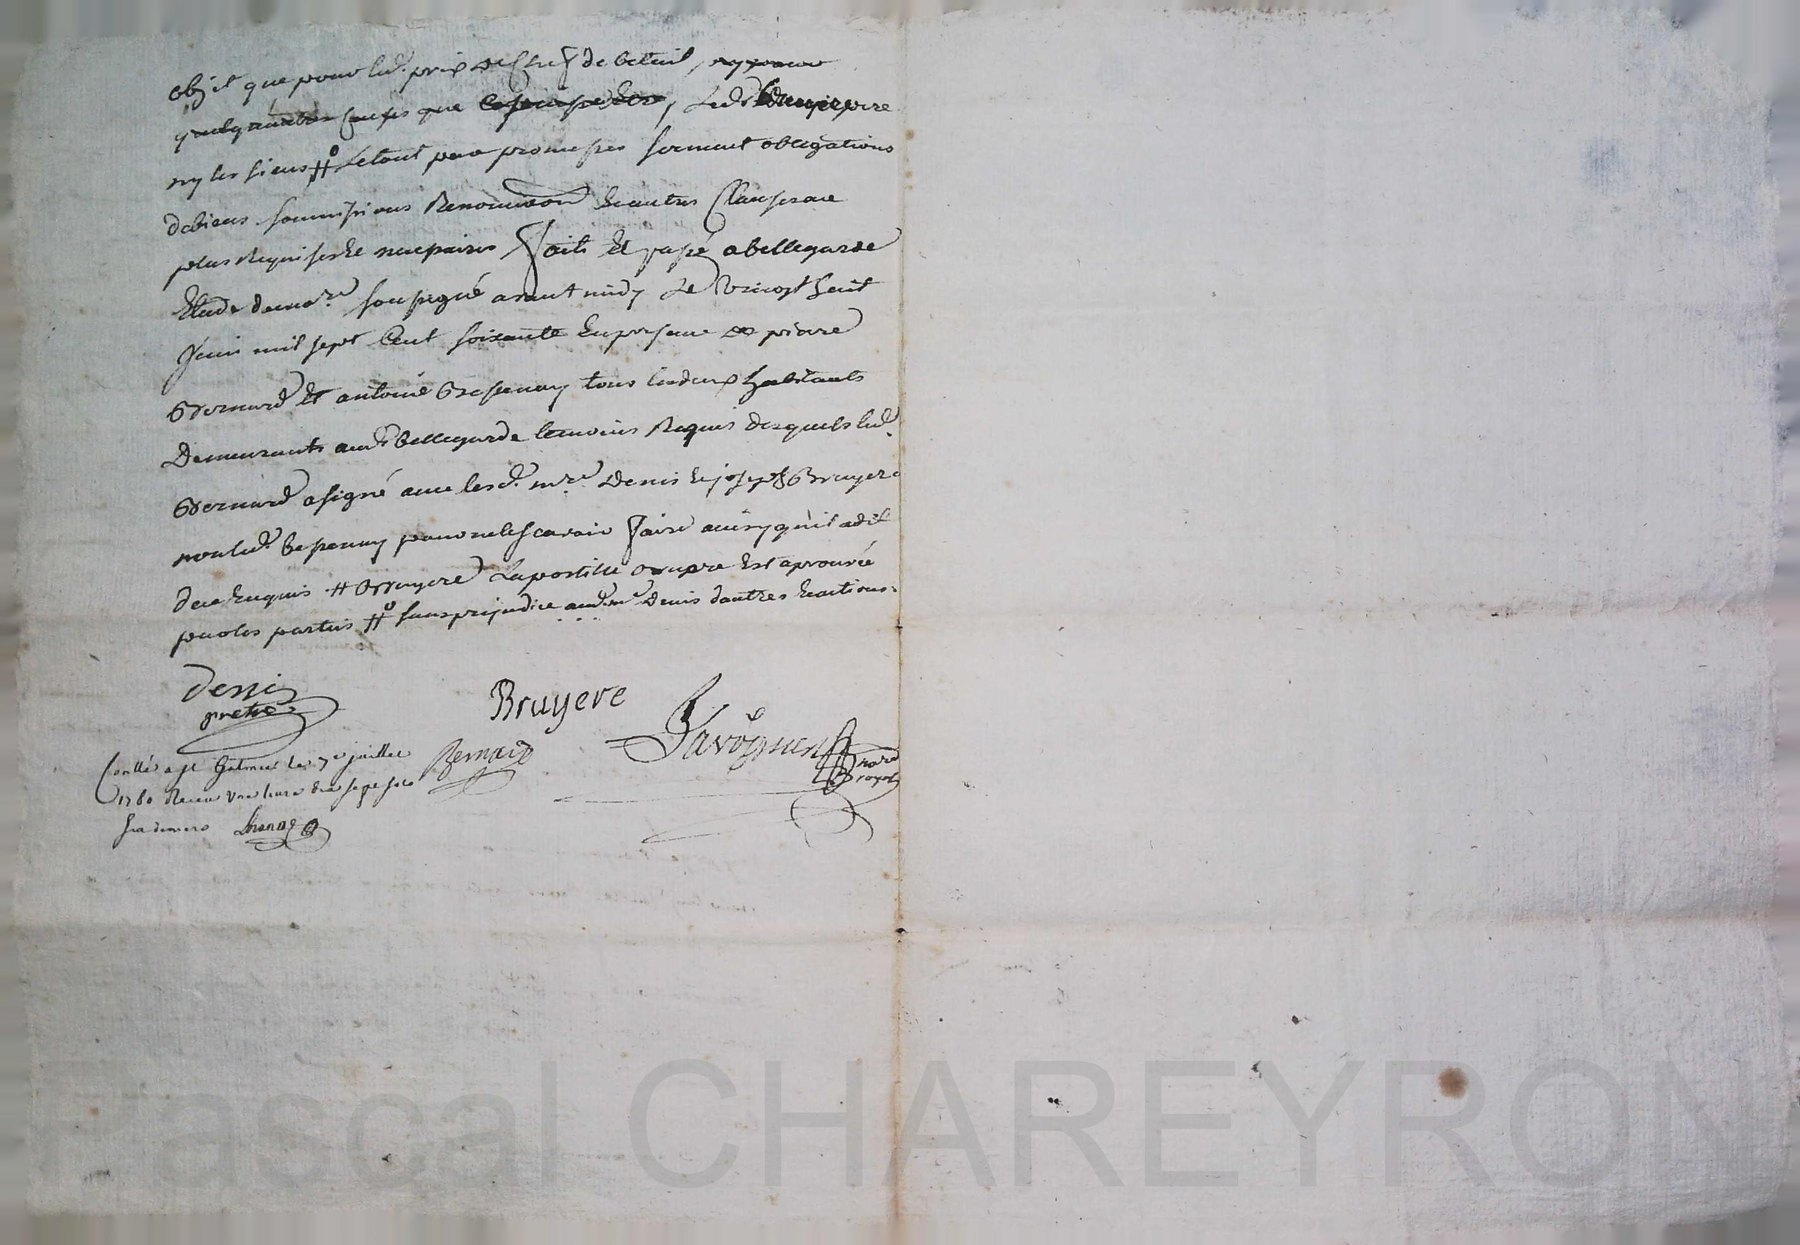 objet que pour lud. prix des chefs de betail, ny pour
quelque autre cause que ce soit, Led. Bruyere
ny les siens # Letout par promesses serment obligations
debiens soumissions Renonciaon Et autres Clauses au
plus Requises Et necessaires fait Et passé a bellegarde
Etude denore. soussigné avant midy Le vingt huit
Juin mil sept Cent soixante En presence de pierre
Bernard Et antoine Bessenay tous lesdeux habitants
Demeurants aud. bellegarde temoins Requis desquels led.
Bernard asigné avec lesd. mre. Denis Et joseph Bruyere
nonled. Bessenay pour nelescavoir faire ainsy qu'il adit
dece Enquis # Bruyere Lapostille aupre Est aprouvée
par les parties # sans prejudice aud. mre Denis dautres Eactions.
Denis
pretre
Bruyere
Bernard
Conllé a st Galmier le 7e juillet
1760 Receu une livre dix sept sols
six deniers
nore
royal
Pascal CHAREYRON